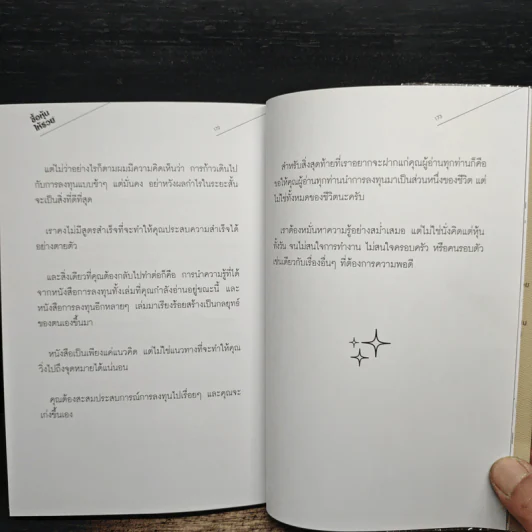 ซื้อหุ้น
ให้รวย
แต่ไม่ว่าอย่างไรก็ตามผมมีความคิดเห็นว่า การก้าวเดินไป
กับการลงทุนแบบช้าๆ แต่มั่นคง อย่าหวังผลกำไรในระยะสั้น
จะเป็นสิ่งที่ดีที่สุด
เราคงไม่มีสูตรสำเร็จที่จะทำให้คุณประสบความสำเร็จได้
อย่างตายตัว
และสิ่งเดียวที่คุณต้องกลับไปทำต่อก็คือ การนำความรู้ที่ได้
จากหนังสือการลงทุนทั้งเล่มที่คุณกำลังอ่านอยู่ขณะนี้ และ
หนังสือการลงทุนอีกหลายๆ เล่มมาเรียงร้อยสร้างเป็นกลยุทธ์
ของตนเองขึ้นมา
หนังสือเป็นเพียงแค่แนวคิด แต่ไม่ใช่แนวทางที่จะทำให้คุณ
วิ่งไปถึงจุดหมายได้แน่นอน
คุณต้องสะสมประสบการณ์การลงทุนไปเรื่อยๆ และคุณจะ
เก่งขึ้นเอง
สำหรับสิ่งสุดท้ายที่เราอยากจะฝากแก่คุณผู้อ่านทุกท่านก็คือ
ขอให้คุณผู้อ่านทุกท่านนำการลงทุนมาเป็นส่วนหนึ่งของชีวิต แต่
ไม่ใช่ทั้งหมดของชีวิตนะครับ
เราต้องหมั่นหาความรู้อย่างสม่ำเสมอ แต่ไม่ใช่นั่งคิดแต่หุ้น
ทั้งวัน จนไม่สนใจการทำงาน ไม่สนใจครอบครัว หรือคนรอบตัว
เช่นเดียวกับเรื่องอื่นๆ ที่ต้องการความพอดี